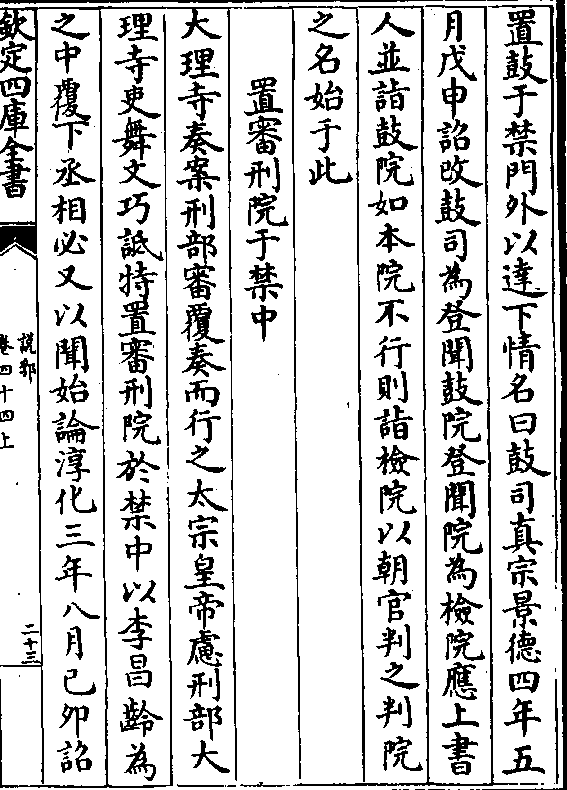 置鼓于禁門外以達下情名曰鼓司真宗景德四年五
月戊申詔改鼓司為登聞鼓院登聞院為檢院應上書
人並詣鼓院如本院不行則詣檢院以朝官判之判院
之名始于此
置審刑院于禁中
大理寺奏案刑部審覆奏而行之太宗皇帝慮刑部大
理寺吏舞文巧詆特置審刑院於禁中以李昌齡為
之中覆下丞相必又以聞始論淳化三年八月己卯詔
欽定四庫全書
説郛
卷四十四上
二十三